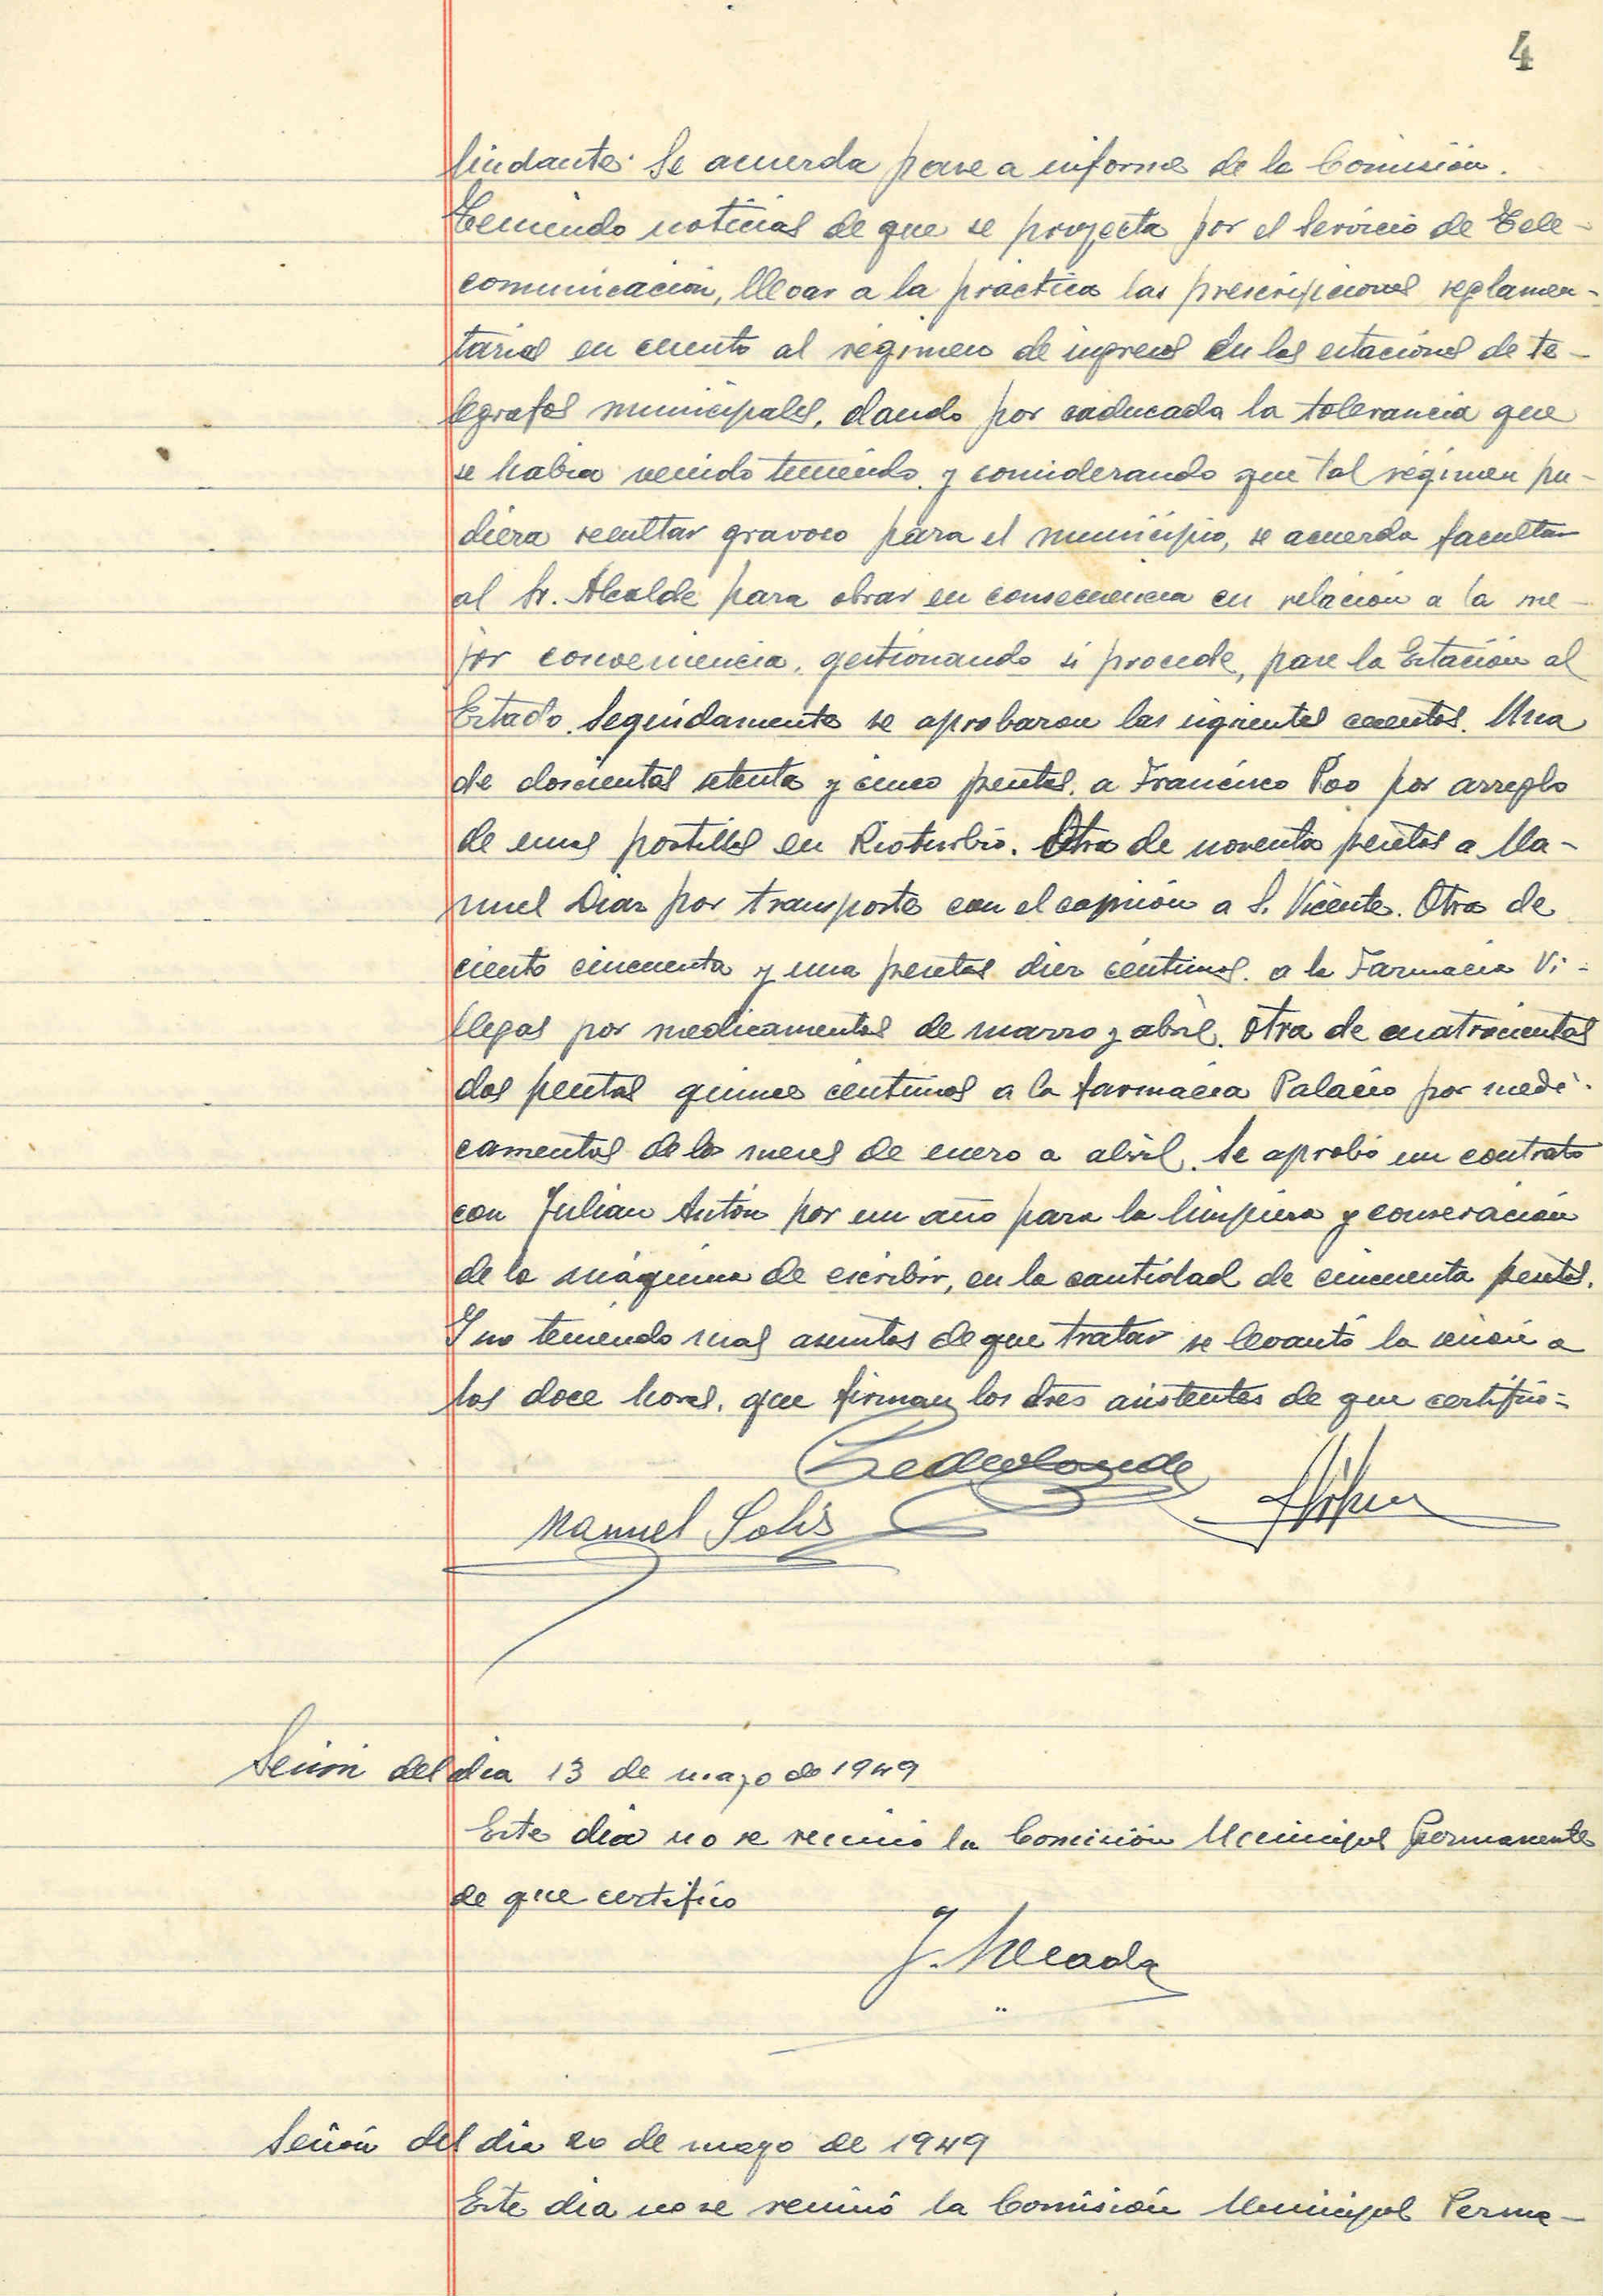 4
lindante. Se acuerda pase a informe de la Comisión.
Teniendo noticias de que se proyecta por el Servicio de Tele-
comunicación, llevar a la práctica las prescripciones reglamen-
tarias en cuento al régimen de ingresos en las estaciones de te-
legrafos municipales, dando por caducada la tolerancia que
se habia venido teniendo, y considerando que tal régimen pu-
diera resultar gravoso para el municipio, se acuerda facultar
al Sr. Alcalde para obrar en consecuencia en relación a la me-
jor conveniencia, gestionando si procede, pase la Estación al
Estado. Seguidamente se aprobaron las siguientes cuentas. Una
de doscientas setenta y cinco pesetas, a Francisco Poo por arreglo
de unas portillas en Rioturbio. Otra de noventa pesetas a Ma-
nuel Diaz por transporte con el camión a S. Vicente. Otra de
ciento cincuenta y una pesetas diez céntimos, a la Farmacia Vi-
llegas por medicamentos de marzo y abril. Otra de cuatrocientas
dos pesetas quince céntimos a la farmacia Palacio por medi-
camentos de los meses de enero a abril. Se aprobó un contrato
con Julian Antón por un año para la limpieza y conservación
de la máquina de escribir, en la cantidad de cincuenta pesetas.
Y no teniendo mas asuntos de que tratar se levantó la sesión a
las doce horas, que firman los Sres asistentes de que certifico=
Manuel Solis
Sesión del dia 13 de mayo de 1949
Este dia no se reunió la Comisión Municipal Permanente
de que certifico
Sesión del dia 20 de mayo de 1949
Este dia no se reunió la Comisión Municipal Perma-